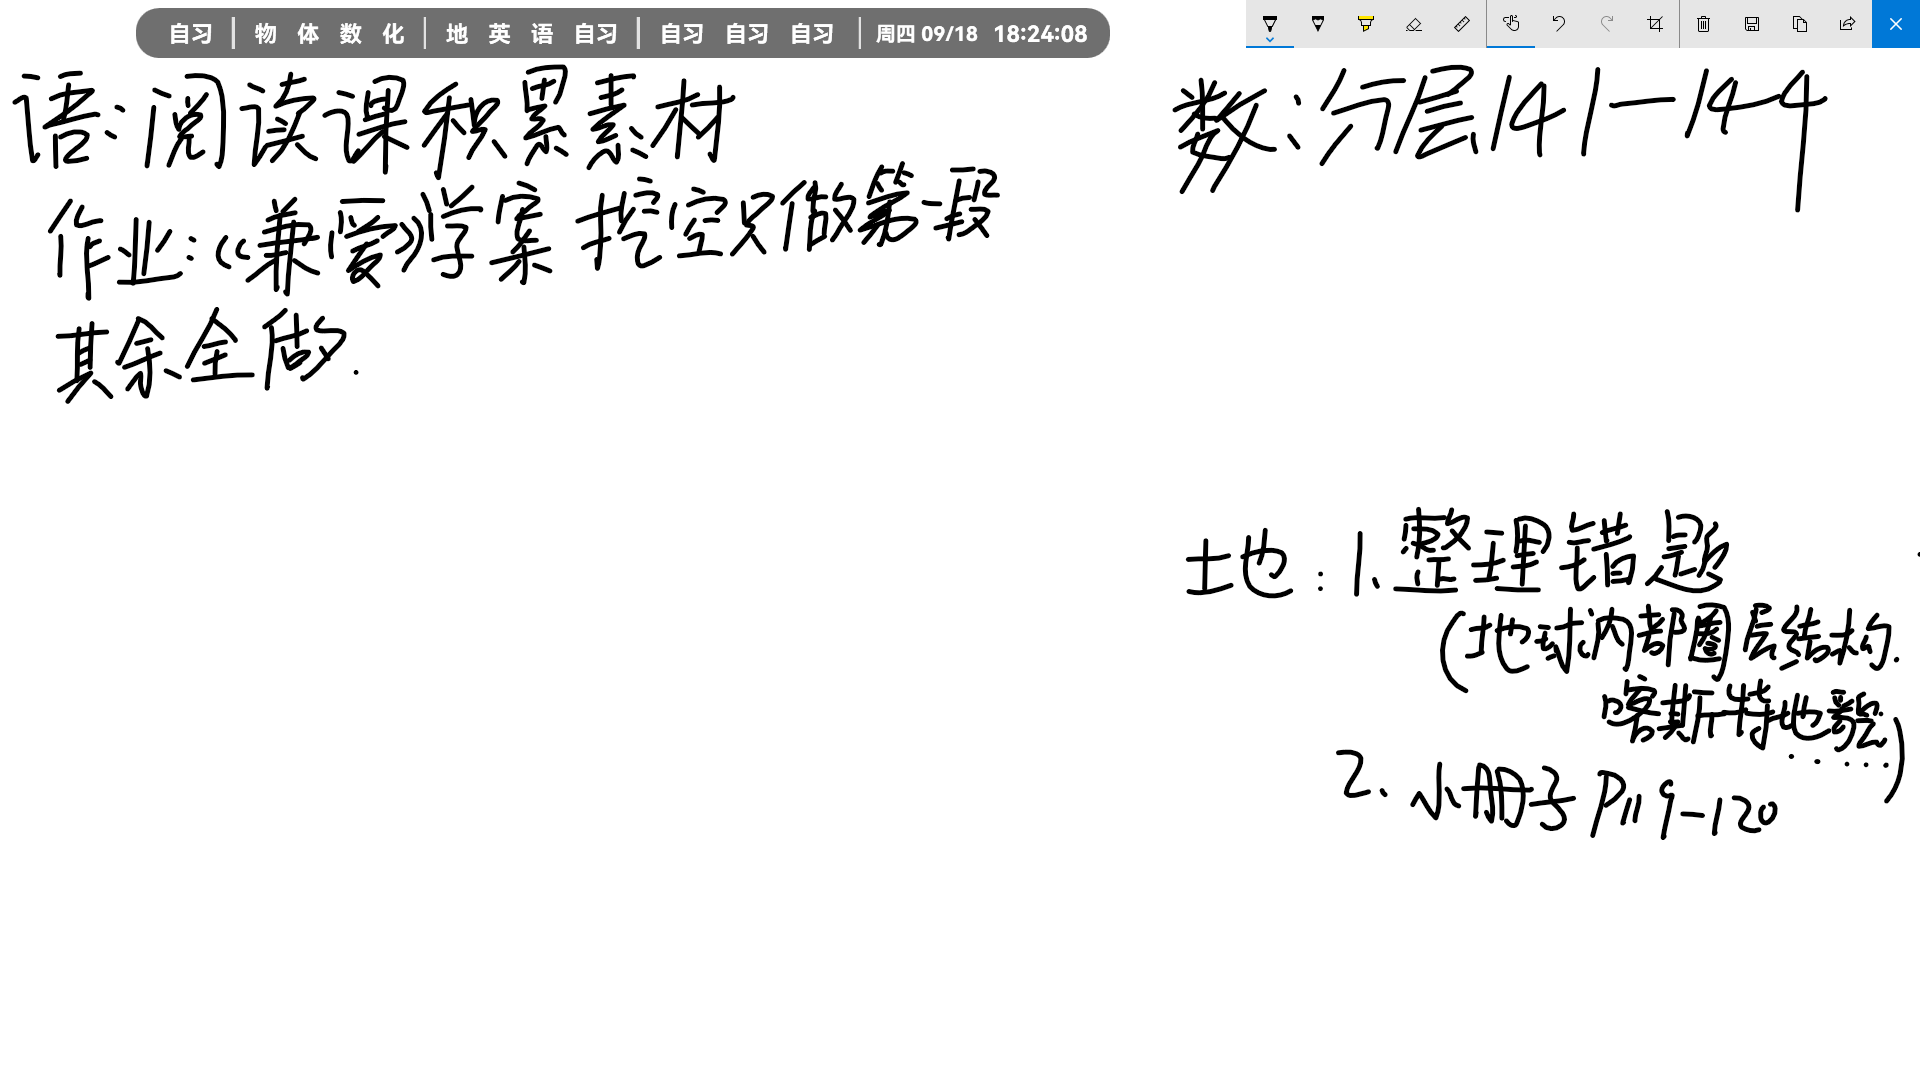 自习 | 物 体 数 化 | 地 英 语 自习 | 自习 自习 自习 | 周四 09/18 18:24:08
语:阅读课积累素材
作业:《兼爱》学案 挖空只做第一段
其余全做.
数:分层141-144
土地:1.整理错题
(地球内部圈层结构.
喀斯特地貌......)
2.小册子P119-120